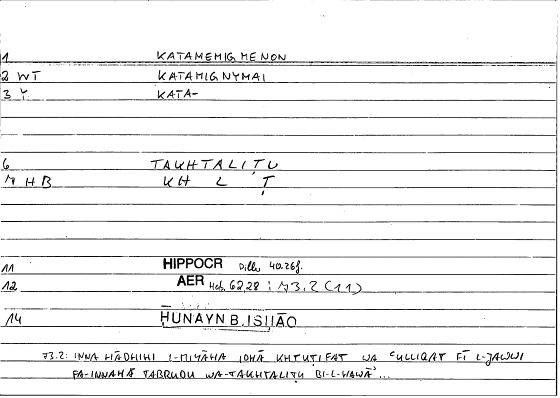 1 KATAMEMIGMENON
2 WT KATAMIGNYMAI
3 Y. KATA-
6 TAKHTALIṬU
7 HB KH L Ṭ
11 HIPPOCR Diller 40.26f.
12 AER 62,28 ; 73.2 (11)
14 ḤUNAYN B. ISḤĀQ
73.2: INNA HĀDHIHI L-MIYĀHA IDHĀ KHTUṬIFAT WA ʿULLIQAT FĪ L-JAWWI
FA-INNAHĀ TABRUDU WA-TAKHTALIṬU BI-L-HAWĀʾ...